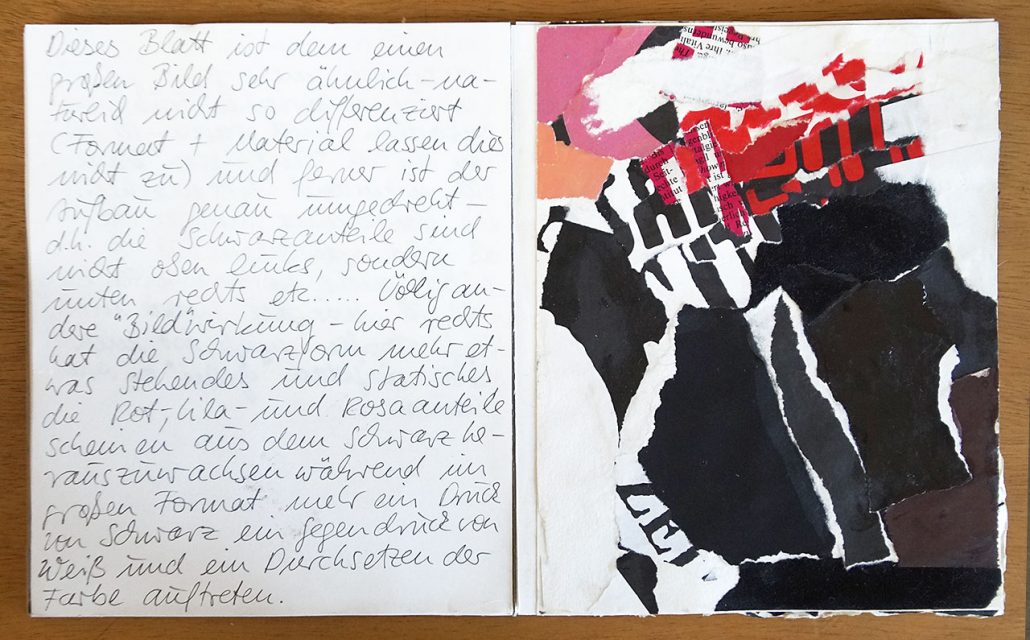 Dieses Blatt ist dem einen
großen Bild sehr ähnlich – na-
türlich nicht so differenziert
(Format + Material lassen dies
nicht zu) und ferner ist der
Aufbau genau umgedreht –
d.h. die Schwarzanteile sind
nicht oben links, sondern
unten rechts etc..... Völlig an-
dere "Bild"wirkung – hier rechts
hat die Schwarzform mehr et-
was stehendes und statisches
die Rot-, Lila- und Rosaanteile
scheinen aus dem Schwarz he-
rauszuwachsen während im
großen Format mehr ein Druck
von Schwarz ein Gegendruck von
Weiß und ein Durchsetzen der
Farbe auftreten.
ihre Vitali
durch
Seit-
echte